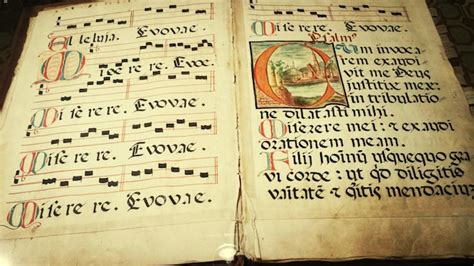 Mi se re re. Evovae.
Al le luja.
Mi se re re. Evovae.
Mi se re re. Evovae.
Mi se re re. Evovae.
Mi se re re. Evovae.
Cum invoca
rem exaudi
vit me Deus
justitiæ meæ:
in tribulatio
ne dilatasti mihi.
Miserere mei: et exaudi
orationem meam.
Filij hoĩnũ usquequo gra
vi corde: ut qd̃ diligitis
vaĩtatẽ et q̃ritis mendaciũ